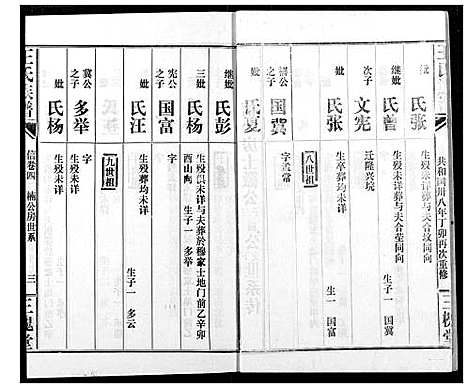 王氏
共和国卅八年丁卯再次重修
三槐堂
妣
氏張
生殁未详与夫合坟同向
继妣
氏曾
生殁未详葬与夫合茔同向
生子一 国冀
次子
文宪
迁隆兴垸
妣
氏張
生卒葬均未详
生子一 国富
八世祖
之子
国冀
字道常
妣
氏夏
继妣
氏彭
三妣
氏杨
生殁俱未详与夫葬於穆家土地门前乙辛卯
酉山向 生子一 多举
宪公
之子
国富
字
妣
氏汪
生殁葬均未详
生子一 多云
九世祖
冀公
之子
多举
字
妣
氏杨
生殁未详
王氏宗谱
信卷四 楠公房世系
三
三槐堂